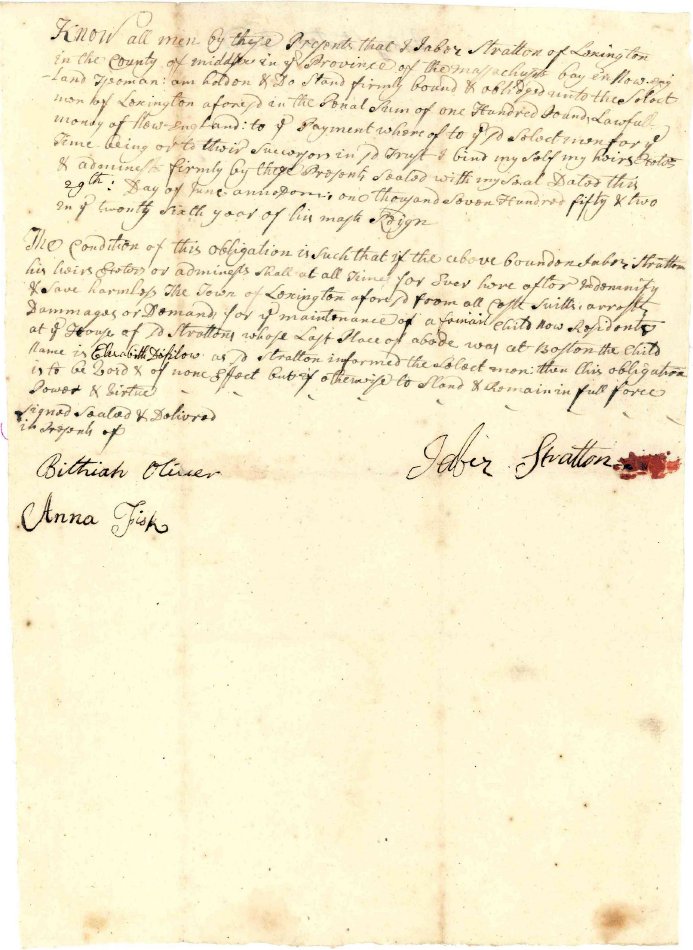 Know all men by these Presents that I Jabez Stratton of Lexington
in the County of middsex in ye Province of the massachusts bay in Now-eng
-Land Yeoman: am holden & Do Stand firmly bound & obliged unto the Select
men of Lexington afores'd in the Penal Sum of one Hundred Pounds Lawfull
money of New-England: to ye Payment where of to ye s'd Select men for ye
Time being or to their Successors in s'd Trust I bind my self my heirs
& adminests firmly by these Presents Sealed with my Seal Dated this
29th: Day of June annodom: one thousand Seven Hundred fifty & two
in ye twenty Sixth year of his majts Reign
The Condition of this obligation is Such that if the above bounden Jabez Stratton
his heirs or adminests Shall at all Times for Ever here after Indemnify
& Save harmless The Town of Lexington afores'd from all Cost Suitts: arrests
Dammages or Demands for ye maintenance of a child Now Residents
at ye House of s'd Strattons whose Last Place of abode was at Boston the Child
Name is Elizabeth as s'd Stratton informed the select men: then this obligation
is to be Void & of none Effect but if otherwise to Stand & Remain in full force
Power & Virtue
Signed Sealed & Delivred
in Presents of
Bithiah Oliver Jabez Stratton
Anna Fisk